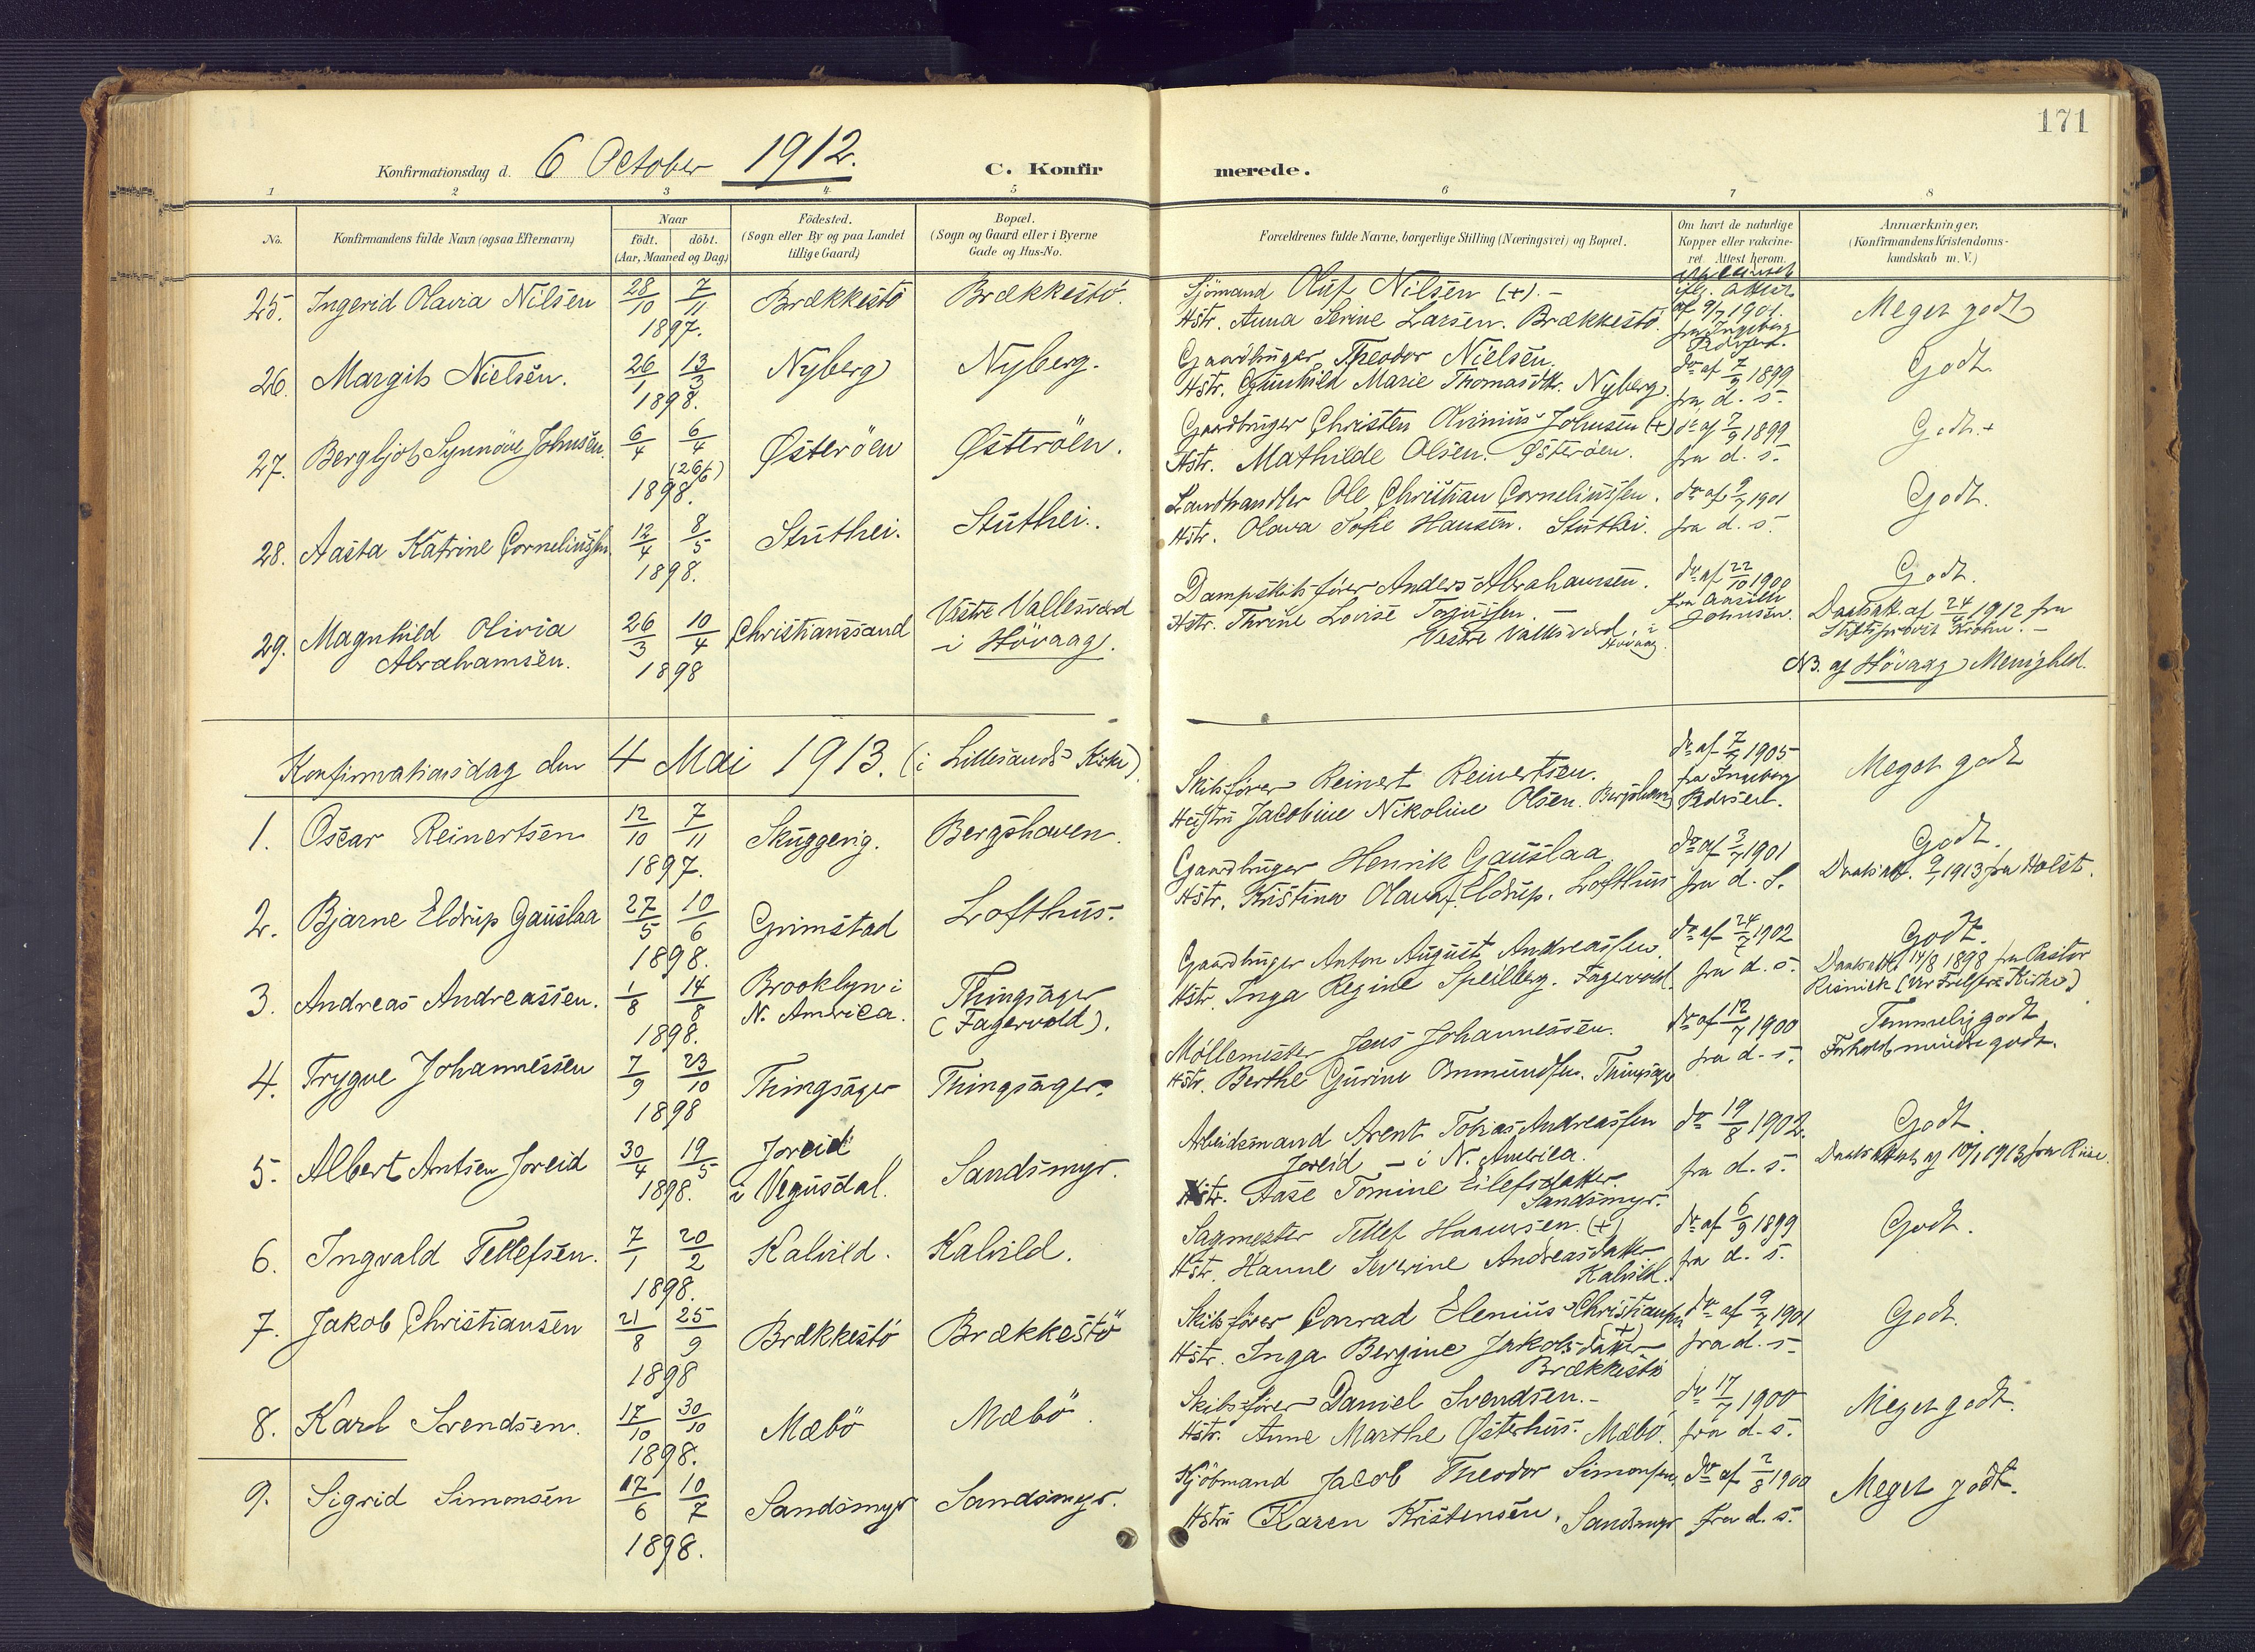 171
Konfirmationsdag d. 6 October 1912.
C. Konfirmerede.
1 2 3 4 5 6 7 8
No.
Konfirmandens fulde Navn (ogsaa Efternavn)
Naar
født. døbt.
(Aar, Maaned og Dag)
Födested.
(Sogn eller By og paa Landet
tillige Gaard)
Bopæl.
(Sogn og Gaard eller i Byerne
Gade og Hus-No.
Forældrenes fulde Navne, borgerlige Stilling (Næringsvei) og Bopæl.
Om havt de naturlige
Kopper eller vakcine-
ret. Attest herom.
Anmærkninger,
(Konfirmandens Kristendoms-
kundskab m. V.)
25. Ingerid Olavia Nilsen 28/10 7/11 1897. Brækkestö Brækkestö.
Sjömand Oluf Nilsen (+). -
Hstr. Anna Serine Larsen. Brækkestö.
af 9/7 1901.
fra Ingeborg
Pedersen.
Meget godt
26. Margit Nielsen. 26/1 13/3 1898. Nyberg Nyberg.
Gaardbruger Theodor Nielsen,
Hstr. Gunhild Marie Thomasdtr. Nyberg.
do af 7/9 1899
fra d. s.
Godt.
27. Bergljot Synnöve Johnsen. 6/4 6/4 (26/6) 1898. Østeröen Østeröen.
Gaardbruger Christen Olvinius Johnsen (+)
Hstr. Mathilde Olsen. Østeröen.
do af 7/9 1899
fra d. s.
Godt. +
28. Aasta Katrine Corneliussen 12/4 8/5 1898. Stuthei. Stuthei.
Landhandler Ole Christian Corneliussen.
Hstr. Olava Sofie Hansen. Stuthei.
do af 9/7 1901
fra d. s.
Godt.
29. Magnhild Olivia
Abrahamsen.
26/3 10/4 1898 Christianssand
Vestre Vallesværd
i Hövaag.
Dampskibsfører Anders Abrahamsen.
Hstr. Thrine Lovise Torjussen -
Vestre Vallesværd i
Hövaag.
do af 22/10 1900
fra
Johnsen.
Godt.
Daabsatt. af 24/4 1912 fra
Stiftsprovst Krohn. -
NB. af Hövaag Menighed.
Konfirmationsdag den 4 Mai 1913. (i Lillesands Kirke).
1. Oscar Reinertsen 12/10 7/11 1897. Skuggevig. Bergshaven.
Skibsfører Reinert Reinertsen.
Hustru Jacobine Nikoline Olsen. Bergshaven
do af 7/7 1905
fra Ingeborg
Pedersen.
Meget godt
2. Bjarne Eldrup Gauslaa 27/5 10/6 1898. Grimstad Lofthus.
Gaardbruger Henrik Gauslaa.
Hstr. Kristina Olava f. Eldrup. Lofthus
do af 3/7 1901
fra d. s.
Godt.
Daabsatt. 9/1 1913 fra Holst.
3. Andreas Andreassen. 1/8 14/8 1898.
Brooklyn i
N. America.
Thingsager
(Fagervold).
Gaardbruger Anton August Andreassen.
Hstr. Inga Regine Speilberg. Fagervold.
do af 24/7 1902
fra d. s.
Godt.
Daabsatt. 14/8 1898 fra Pastor
(Vor Frelsers Kirke)
4. Trygve Johannessen 7/9 23/10 1898 Thingsager Thingsager.
Møllemester Jens Johannessen.
Hstr. Berthe Gurine Onmundsen. Thingsager
do af 12/7 1900
fra d. s.
Temmelig godt
Forhold mindre godt.
5. Albert Arntsen Joreid 30/4 19/5 1898.
Joreid
i Vegusdal.
Sandsmyr.
Arbeidsmand Arent Tobias Andreassen
Joreid - i N. America.
Hstr. Aase Tomine Eilefsdatter.
Sandsmyr.
do 19/8 1902.
fra d. s.
Godt.
Daabsattest af 10/1 1913 fra Riise.
6. Ingvald Tellefsen. 7/1 20/2 1898. Kalvild. Kalvild.
Sagmester Tellef Hansen. (+)
Hstr. Hanne Severine Andreasdatter
Kalvild.
do af 6/9 1899
fra d. s.
Godt.
7. Jakob Christiansen 21/8 25/9 1898 Brækkestö Brækkestö
Skibsfører Conrad Elenius Christiansen
(+)
Hstr. Inga Bergine Jakobsdatter
Brækkestö
do af 9/7 1901
fra d. s.
Godt.
8. Karl Svendsen. 17/10 30/10 1898. Mæbö Mæbö.
Skibsfører Daniel Svendsen. -
Hstr. Anne Marthe Østerhus. Mæbö.
do 17/7 1900
fra d. s.
Meget godt.
9. Sigrid Simonsen 17/6 10/7 1898. Sandsmyr Sandsmyr.
Kjöbmand Jacob Theodor Simonsen,
Hstru Karen Kristensen. Sandsmyr
do af 2/8 1900
fra d. s.
Meget godt.